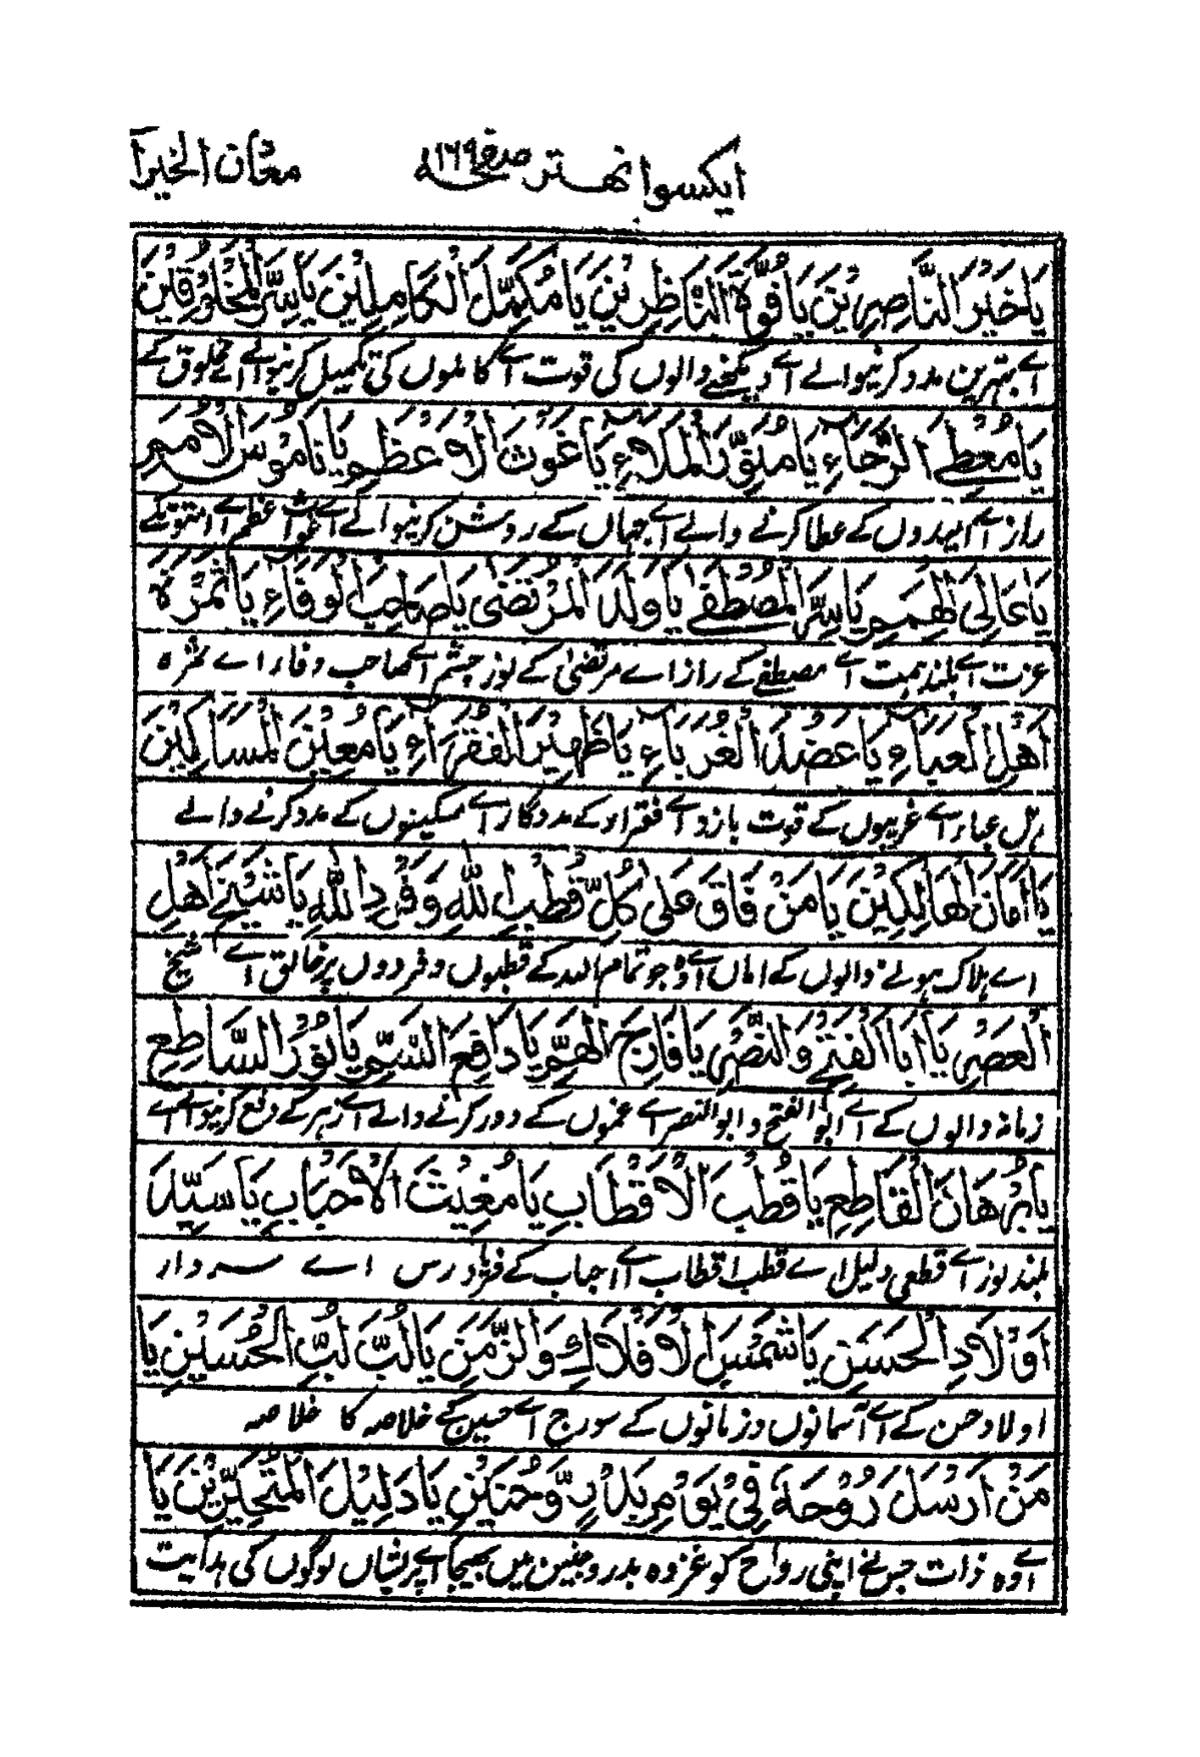 ایکسوانھتر صفحہ ۱۶۹ معان الخیرآ
یَا خَیْرَ النَّاصِرِیْنَ یَا قُوَّةَ النَّاظِرِیْنَ یَا مُکَمِّلَ الْکَامِلِیْنَ یَا سِرَّ الْمَخْلُوْقِیْنَ
اے بہترین مدد کرنیوالے اے دیکھنے والوں کی قوت اے کاملوں کی تکمیل کرنیوالے اے مخلوق کے
یَا مُعْطِیَ الرَّجَآءِ یَا مُنَوِّرَ الْمَلَاءِ یَا غَوْثَ الْاَعْظَمِ یَا نَامُوْسَ الْاُمَمِ
راز اے امیدوں کے عطا کرنے والے اے جہاں کے روشن کرنیوالے اے غوث اعظم اے امتوں کے
یَا عَالِیَ الْهِمَمِ یَا سِرَّ الْمُصْطَفٰی یَا وَلَدَ الْمُرْتَضٰی یَا صَاحِبَ الْوَفَآءِ یَا ثَمَرَةَ
عزت اے بلند ہمت اے مصطفےٰ کے راز اے مرتضیٰ کے نور چشم اے صاحب وفاء اے ثمرہ
اَهْلِ الْعَبَآءِ یَا عَضُدَ الْغُرَبَآءِ یَا ظَهِیْرَ الْفُقَرَآءِ یَا مُعِیْنَ الْمَسَاکِیْنَ
اہل عباء اے غریبوں کے قوت بازو اے فقراء کے مددگار اے مسکینوں کے مدد کرنے والے
یَا اَمَانَ الْهَالِکِیْنَ یَا مَنْ فَاقَ عَلٰی کُلِّ قُطْبِ اللّٰهِ وَفَرْدِ اللّٰهِ یَا شَیْخَ اَهْلِ
اے ہلاک ہونے والوں کے اماں اے وہ جو تمام اللہ کے قطبوں و فردوں پر فائق اے شیخ
الْعَصْرِ یَا اَبَا الْفَتْحِ وَالنَّصْرِ یَا فَارِجَ الْهَمِّ یَا دَافِعَ السَّمِّ یَا نُوْرَ السَّاطِعِ
زمانہ والوں کے اے ابو الفتح و ابو النصر اے غموں کے دور کرنے والے اے زہر کے دفع کرنیوالے اے
یَا بُرْهَانَ الْقَاطِعِ یَا قُطْبَ الْاَقْطَابِ یَا مُغِیْثَ الْاَحْبَابِ یَا سَیِّدَ
بلند نور اے قطعی دلیل اے قطب اقطاب اے احباب کے فریاد رس اے سردار
اَوْلَادِ الْحَسَنِ یَا شَمْسَ الْاَفْلَاكِ وَالزَّمَنِ یَا لُبَّ لُبِّ الْحُسَیْنِ یَا
اولاد حسن کے اے آسمانوں و زمانوں کے سورج اے حسین کے خلاصہ کا خلاصہ
مَنْ اَرْسَلَ رُوْحَهٗ فِیْ یَوْمِ بَدْرٍ وَّحُنَیْنٍ یَا دَلِیْلَ الْمُتَحَیِّرِیْنَ یَا
اے وہ ذات جس نے اپنی رواح کو غزوہ بدر و حنین میں بھیجا اے پریشاں لوگوں کی ہدایت